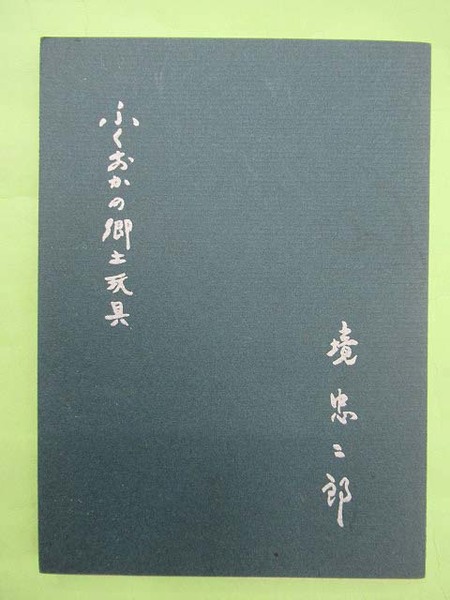 ふくおかの郷土玩具
境忠二郎